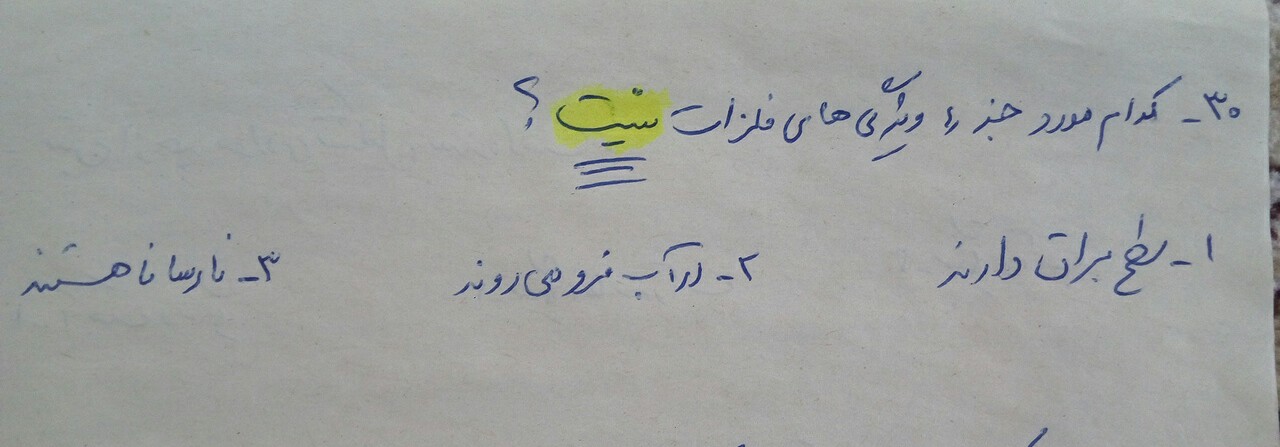 ۳۰- کدام مورد جزء ویژگی های فلزات نیست ؟
۱- سطح براق دارند ۲- در آب فرو می روند ۳- نارسانا هستند